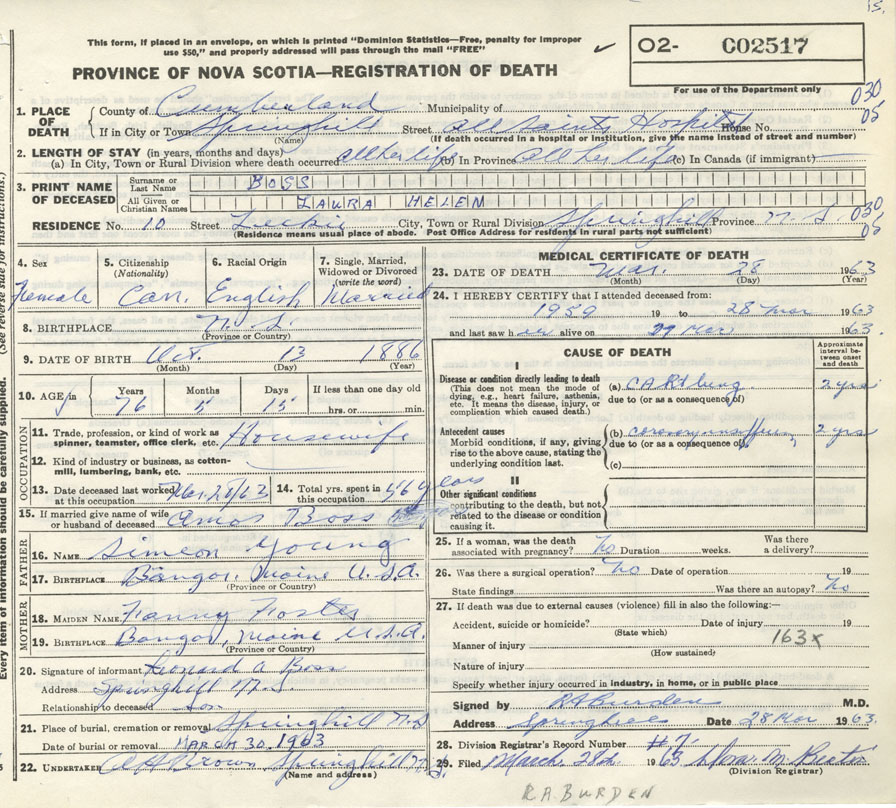 This form, if placed in an envelope, on which is printed "Dominion Statistics—Free, penalty for improper
use $50," and properly addressed will pass through the mail "FREE"
✓ O2- C02517
PROVINCE OF NOVA SCOTIA—REGISTRATION OF DEATH
For use of the Department only
030
05
1. PLACE OF DEATH { County of Cumberland Municipality of
If in City or Town Springhill Street All Saints Hospital House No.
(Name) (If death occurred in a hospital or institution, give its name instead of street and number)
2. LENGTH OF STAY (in years, months and days)
(a) In City, Town or Rural Division where death occurred all her life (b) In Province all her life (c) In Canada (if immigrant)
3. PRINT NAME OF DECEASED
Surname or Last Name BOSS
All Given or Christian Names LAURA HELEN
RESIDENCE No. 10 Street Leckie City, Town or Rural Division Springhill Province N. S.
030
05
(Residence means usual place of abode. Post Office Address for residents in rural parts not sufficient)
(See reverse side for instructions.)
Every item of information should be carefully supplied.
4. Sex Female
5. Citizenship (Nationality) Can.
6. Racial Origin English
7. Single, Married, Widowed or Divorced (write the word) Married
8. BIRTHPLACE N. S.
(Province or Country)
9. DATE OF BIRTH Oct. 13 1886
(Month) (Day) (Year)
10. AGE in { Years 76 Months 5 Days 15 If less than one day old hrs. or min.
OCCUPATION
11. Trade, profession, or kind of work as spinner, teamster, office clerk, etc. Housewife
12. Kind of industry or business, as cotten-mill, lumbering, bank, etc.
13. Date deceased last worked at this occupation Mar. 28/63
14. Total yrs. spent in this occupation 56 years
15. If married give name of wife or husband of deceased Amos Boss
FATHER
16. NAME Simeon Young
17. BIRTHPLACE Bangor, Maine U.S.A.
(Province or Country)
MOTHER
18. MAIDEN NAME Fanny Foster
19. BIRTHPLACE Bangor, Maine U.S.A.
(Province or Country)
20. Signature of informant Leonard A Boss
Address Springhill N.S.
Relationship to deceased son
21. Place of burial, cremation or removal Springhill N.S
Date of burial or removal MARCH 30, 1963
22. UNDERTAKER A H Brown Springhill
(Name and address)
MEDICAL CERTIFICATE OF DEATH
23. DATE OF DEATH Mar. 28 1963
(Month) (Day) (Year)
24. I HEREBY CERTIFY that I attended deceased from:
1959 19 to 28 Mar 1963
and last saw her alive on Mar 1963.
CAUSE OF DEATH
Approximate interval between onset and death
I
Disease or condition directly leading to death
(This does not mean the mode of dying, e.g., heart failure, asthenia, etc. It means the disease, injury, or complication which caused death.)
(a) CA Rt lung 2 yrs
due to (or as a consequence of)
Antecedent causes
Morbid conditions, if any, giving rise to the above cause, stating the underlying condition last.
(b) coronary 2 yrs
due to (or as a consequence of)
(c)
II
Other significant conditions contributing to the death, but not related to the disease or condition causing it.
25. If a woman, was the death associated with pregnancy? No Duration weeks. Was there a delivery?
26. Was there a surgical operation? No Date of operation 19
State findings Was there an autopsy? No
27. If death was due to external causes (violence) fill in also the following:—
Accident, suicide or homicide? Date of injury 19
(State which)
163x
Manner of injury
(How sustained)
Nature of injury
Specify whether injury occurred in industry, in home, or in public place
Signed by RABurden M.D.
Address Springhill Date 28 Mar 1963.
28. Division Registrar's Record Number #7.
29. Filed March 28th 1963
(Division Registrar)
R.A. BURDEN